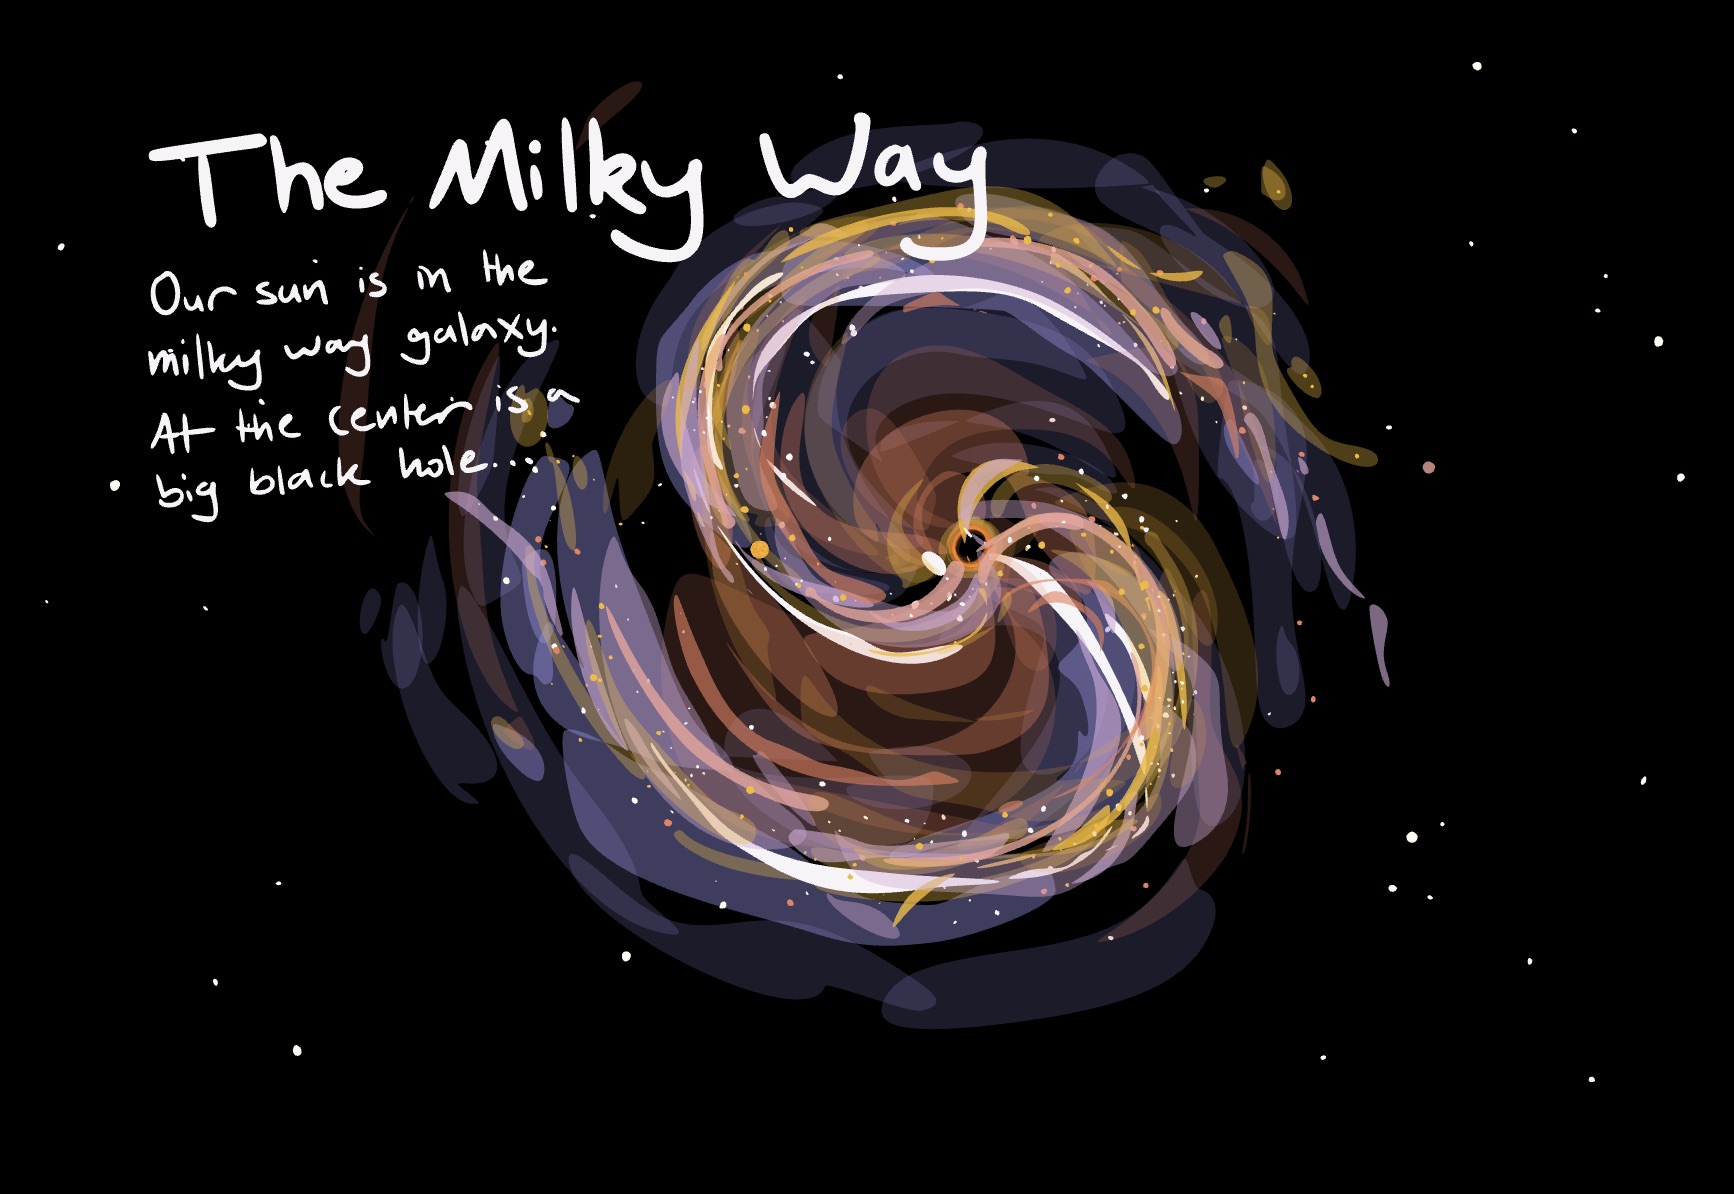 The Milky Way
Our sun is in the
milky way galaxy.
At the center is a
big black hole...